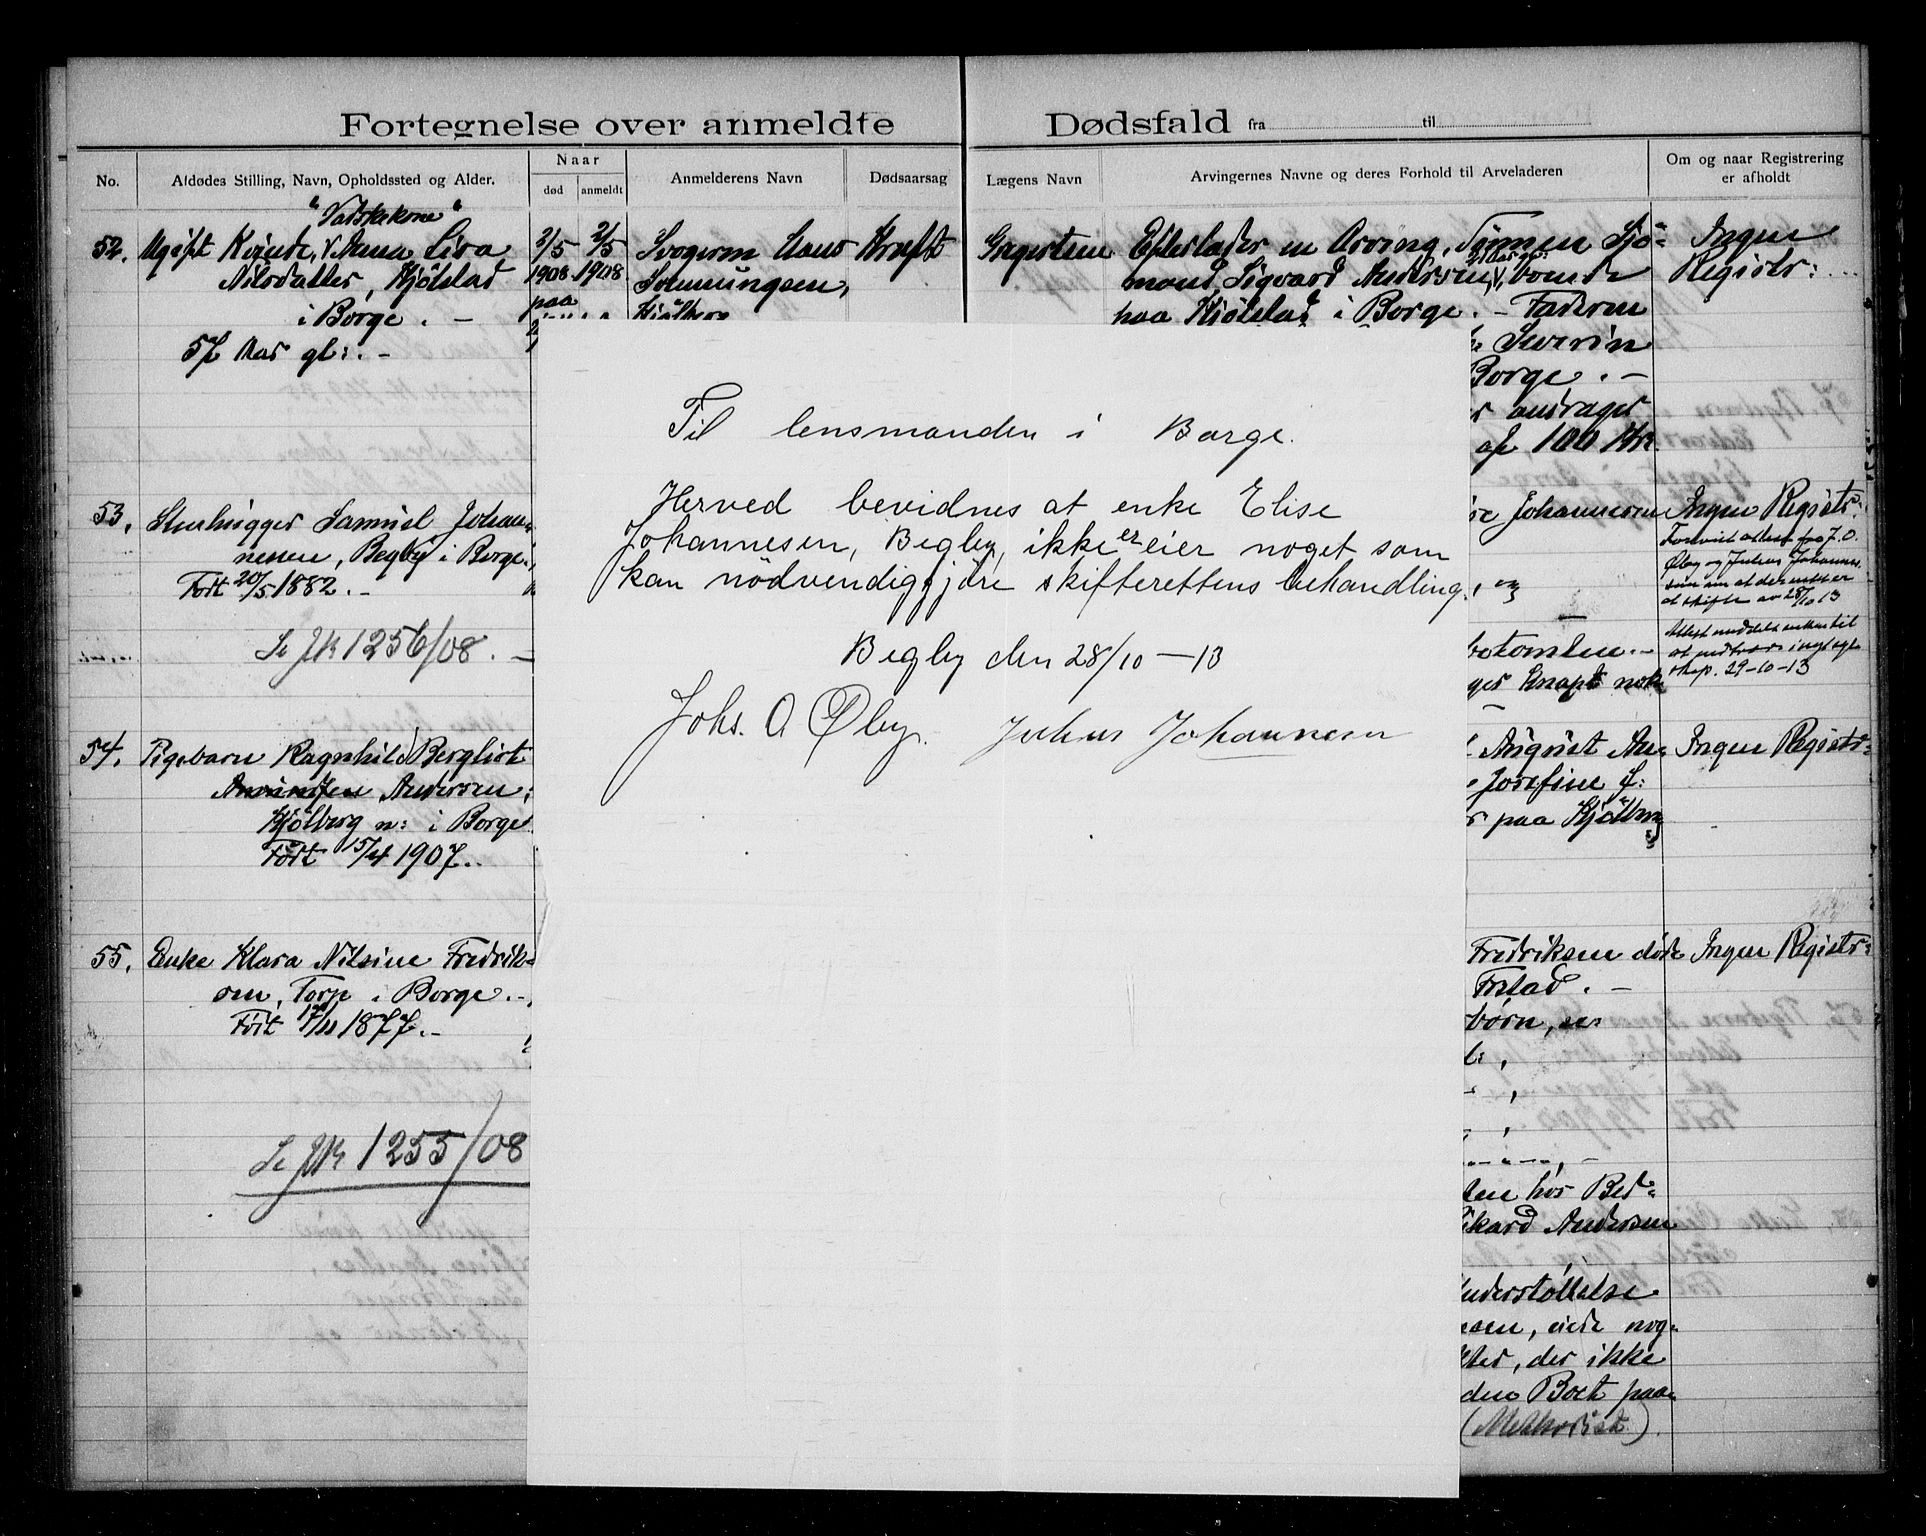 Fortegnelse over anmeldte Dødsfald fra til
No.
Afdødes Stilling, Navn, Opholdssted og Alder.
Naar
død
anmeldt
Anmelderens Navn
Dødsaarsag
Lægens Navn
Arvingernes Navne og deres Forhold til Arveladeren
Om og naar Registrering
er afholdt
"Vadskekone"
52. Ugift Kvinde, Anna Lisa
Nilsdatter, Kjølstad
i Borge. —
57 Aar gl: . —
2/5
1908
paa
2/5
1908
Svogeren Hans
Kjølberg
Kræft
Efterlader en Arving, Sønnen Sjø=
mand Sigvard Andersen, boende
paa Kjølstad i Borge. — Faderen
Severin
Borge . —
andrager
af 100 Kr.
Ingen
Registr:
53. Stenhugger Samuel Johan=
nesen, Begby i Borge.
Født 20/5 1882. —
Se JK 1256/08. —
Johannesen
og
knapt nok
Ingen Registr:
Forevist attest fra J.O.
Øby og Julius Johannes
sen om at der intet er
at skifte av 28/10 13
skap. 29-10-13
54. Pigebarn Ragnhild Bergliot
Amundsen Andersen,
Kjølberg n: i Borge
Født 15/4 1907.
August An=
Josefine f:
paa Kjølberg
Ingen Registr=
55. Enke Klara Nilsine Fredrik=
sen, Torp i Borge. —
Født 17/11 1877. —
Se JK 1255/08
Fredriksen døde
børn, en:
hos Bed=
Rikard Andersen
Understøttelse
eiede nog=
der ikke
Boet paa
(Methodist.)
Ingen Registr=
Til lensmanden i Borge.
Herved bevidnes at enke Elise
Johannesen, Begby, ikke er eier noget som
kan nödvendiggjöre skifterettens behandling.
Begby den 28/10 — 13
Johs. O Øby. Julius Johannesen